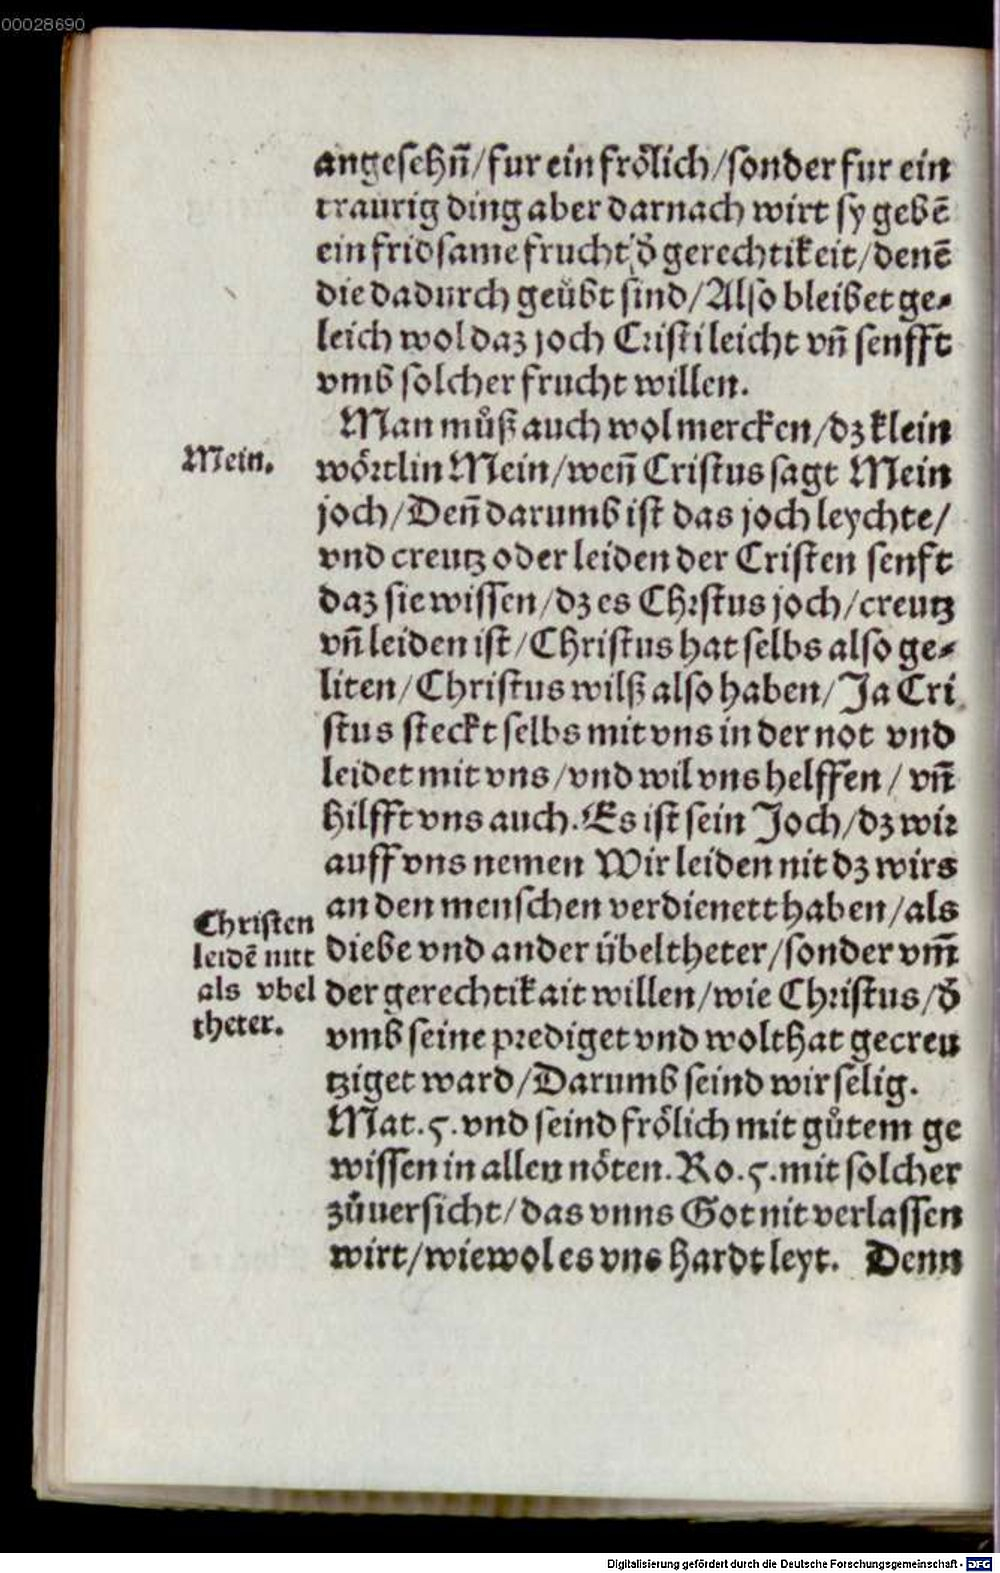 00028690
angesehn̄/fur ein frölich/sonder fur ein
traurig ding aber darnach wirt sy gebē
ein fridsame frucht/đ gerechtikeit/denē
die dadurch geübt sind/Also bleibet ge⸗
leich wol daz joch Cristi leicht vn̄ senfft
vmb solcher frucht willen.
Man můß auch wol mercken/dz klein
Mein.
wörtlin Mein/wen̄ Cristus sagt Mein
joch/Den̄ darumb ist das joch leychte/
vnd creutz oder leiden der Cristen senft
daz sie wissen/dz es Chrstus joch/creutz
vn̄ leiden ist/Christus hat selbs also ge⸗
liten/Christus wilß also haben/Ja Cri
stus steckt selbs mit vns in der not vnd
leidet mit vns/vnd wil vns helffen/vn̄
hilfft vns auch. Es ist sein Joch/dz wir
auff vns nemen Wir leiden nit dz wirs
an den menschen verdienett haben/als
Christen
leidē nitt
als vbel
theter.
diebe vnd ander übeltheter/sonder vm̄
der gerechtikait willen/wie Christus/đ
vmb seine prediget vnd wolthat gecreu
tziget ward/Darumb seind wir selig.
Mat.5.vnd seind frölich mit gůtem ge
wissen in allen nöten.Ro.5.mit solcher
zůuersicht/das vnns Got nit verlassen
wirt/wiewol es vns hardt leyt. Denn
Digitalisierung gefördert durch die Deutsche Forschungsgemeinschaft - DFG